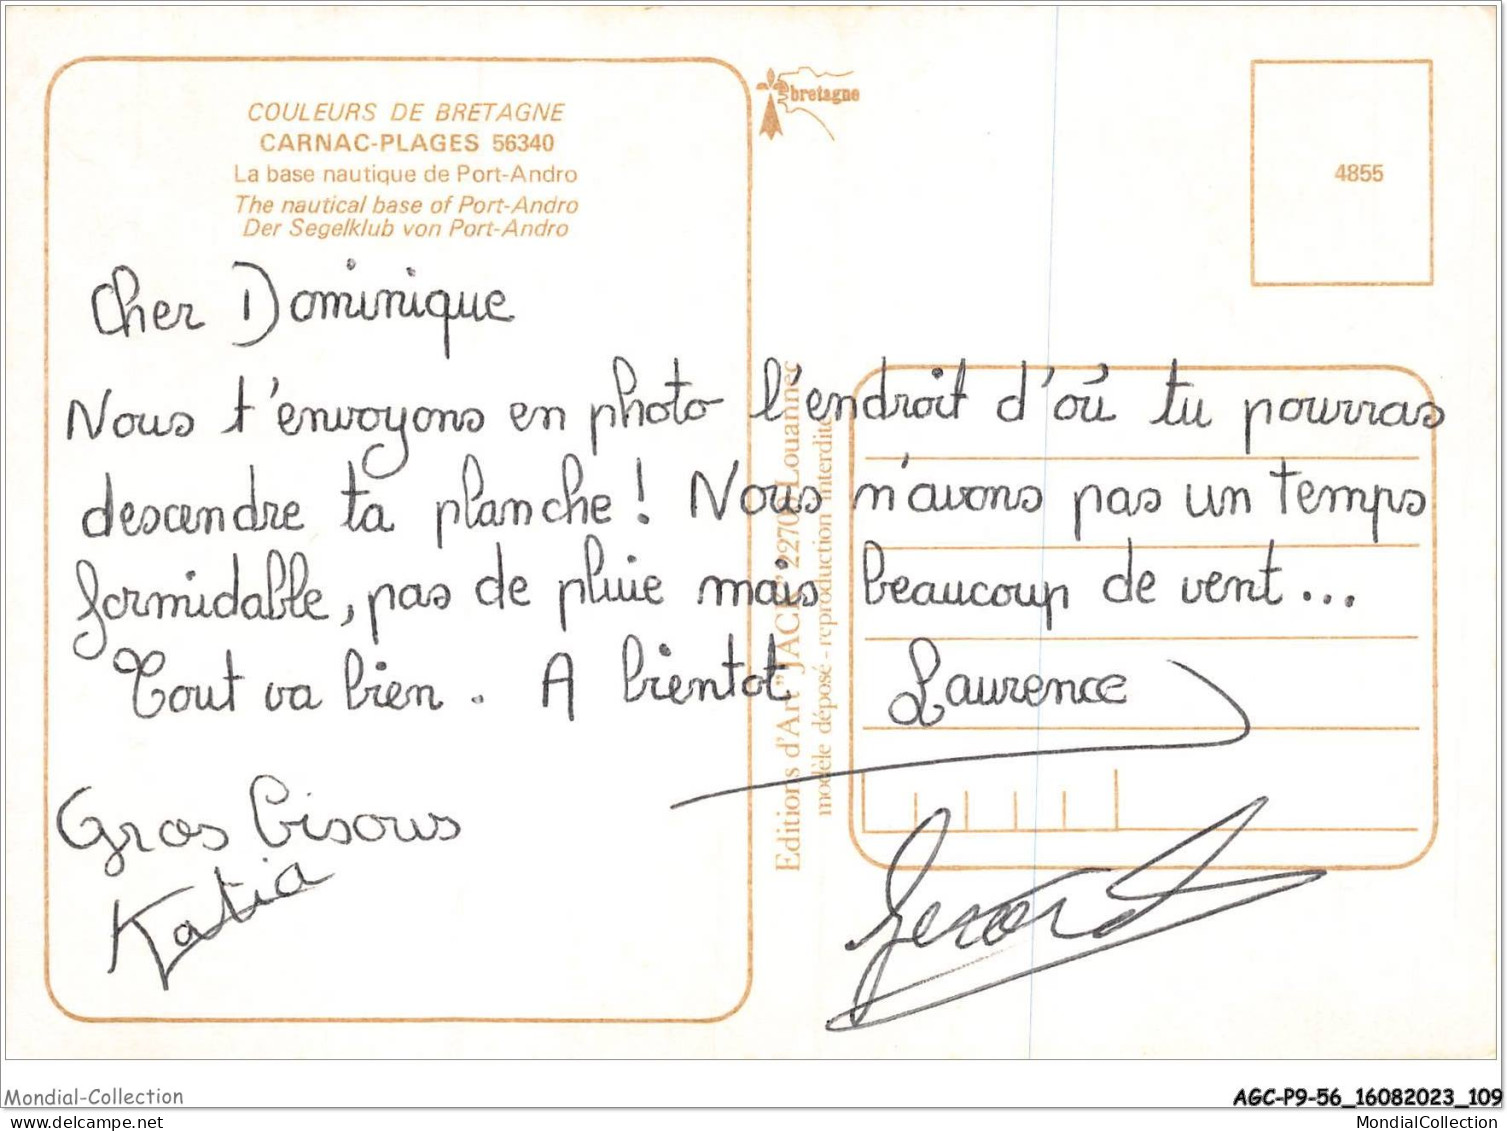 COULEURS DE BRETAGNE
CARNAC-PLAGES 56340
La base nautique de Port-Andro
The nautical base of Port-Andro
Der Segelklub von Port-Andro
bretagne
4855
Cher Dominique
Nous t'envoyons en photo l'endroit d'où tu pourras
descendre ta planche! Nous n'avons pas un temps
formidable, pas de pluie mais beaucoup de vent...
Tout va bien. A bientot Laurence
Gros bisous
Katia
Gerard
Editions d'Art "JACK" 22700 Louannec
modèle déposé - reproduction interdite
Mondial-Collection
AGC-P9-56_16082023_109
www.delcampe.net
MondialCollection